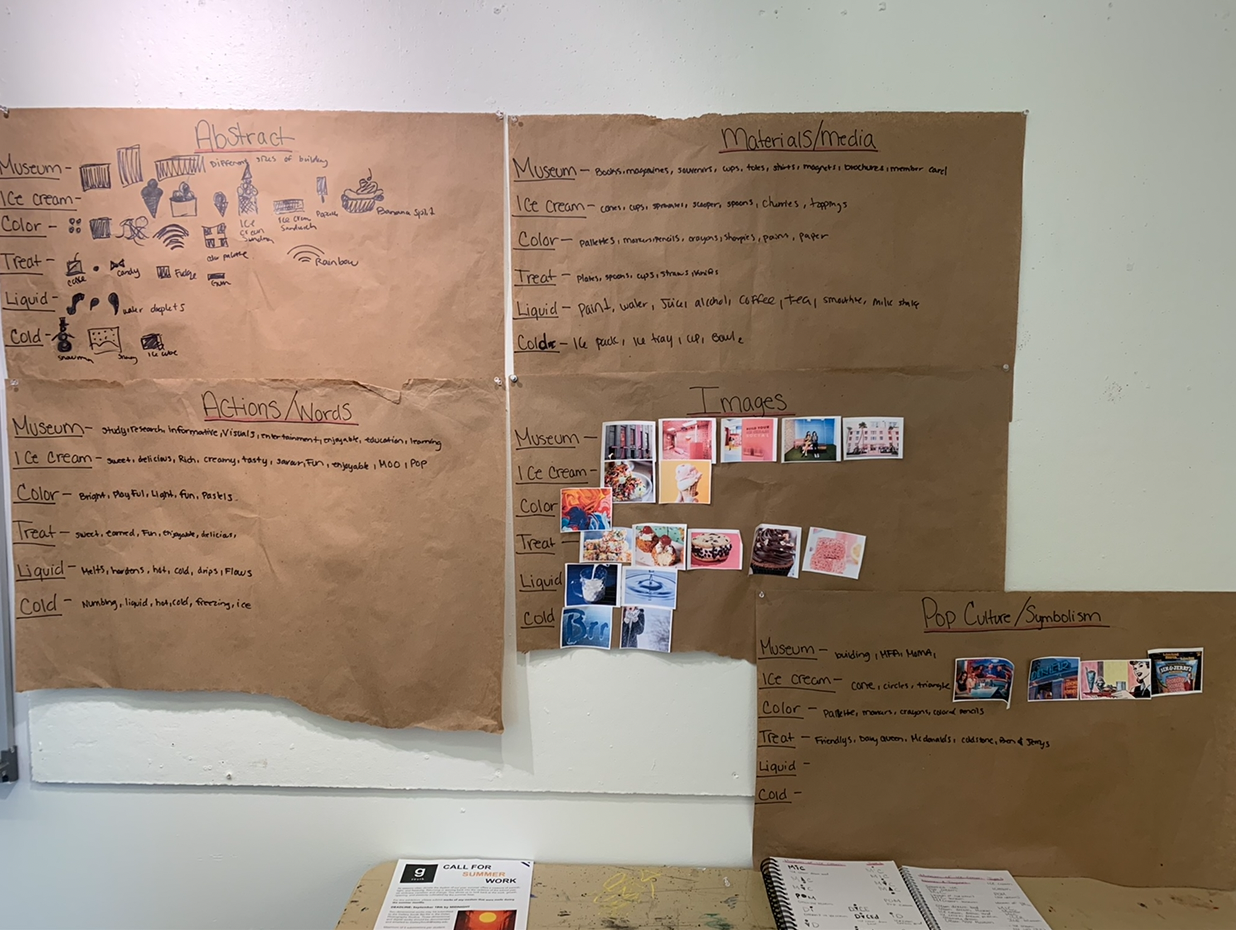 Abstract
Museum - Different sizes of building
Ice cream -
Ice cream Sundae
Ice cream Sandwich
Banana Split
Color - color palette
Rainbow
Treat - cake candy Fudge
Liquid - water droplets
Cold - snowman ice cube
Materials/media
Museum - Books, magazines, souvenirs, cups, totes, shirts, magnets, brochures, member card
Ice cream - cones, cups, sprinkles, scooper, spoons, cherries, toppings
Color - Pallettes, markers, pencils, crayons, sharpies, paints, paper
Treat - Plates, spoons, cups, straws, knifes
Liquid - Paint, water, Juice, alcohol, coffee, tea, smoothie, milk shake
Cold - Ice pack, Ice tray, cup, Bowl
Actions/Words
Museum - study, research, informative, Visuals, entertainment, enjoyable, education, learning
Ice Cream - sweet, delicious, Rich, creamy, tasty, savor, Fun, enjoyable, MOO, Pop
Color - Bright, Playful, Light, fun, Pastels
Treat - sweet, earned, Fun, enjoyable, delicious,
Liquid - Melts, hardens, hot, cold, drips, Flows
Cold - Numbing, liquid, hot, cold, freezing, ice
Images
Museum -
Ice Cream -
Color
Treat -
Liquid
Cold
Brr
Pop Culture/Symbolism
Museum - building, MFA, MoMA,
Ice cream - cone, circles, triangle
BEN & JERRY'S
Color - Pallette, markers, crayons, colored pencils
Treat - Friendlys, Dairy Queen, McDonald's, coldstone, Ben & Jerrys
Liquid -
Cold -
g
CALL FOR
SUMMER
WORK